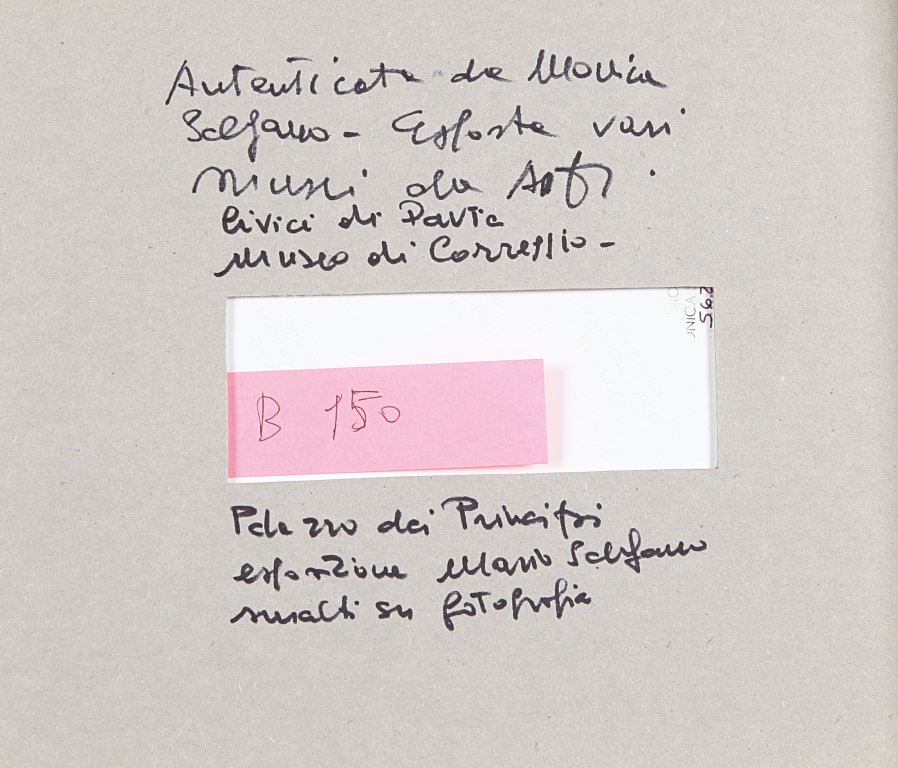 Autenticata da Monica
Schifano - Esposta vari
Musei da Asti.
Civici di Pavia
Museo di Correggio -
562
ONICA
B 150
Palazzo dei Principi
esposizione Mario Schifano
smalti su fotografia